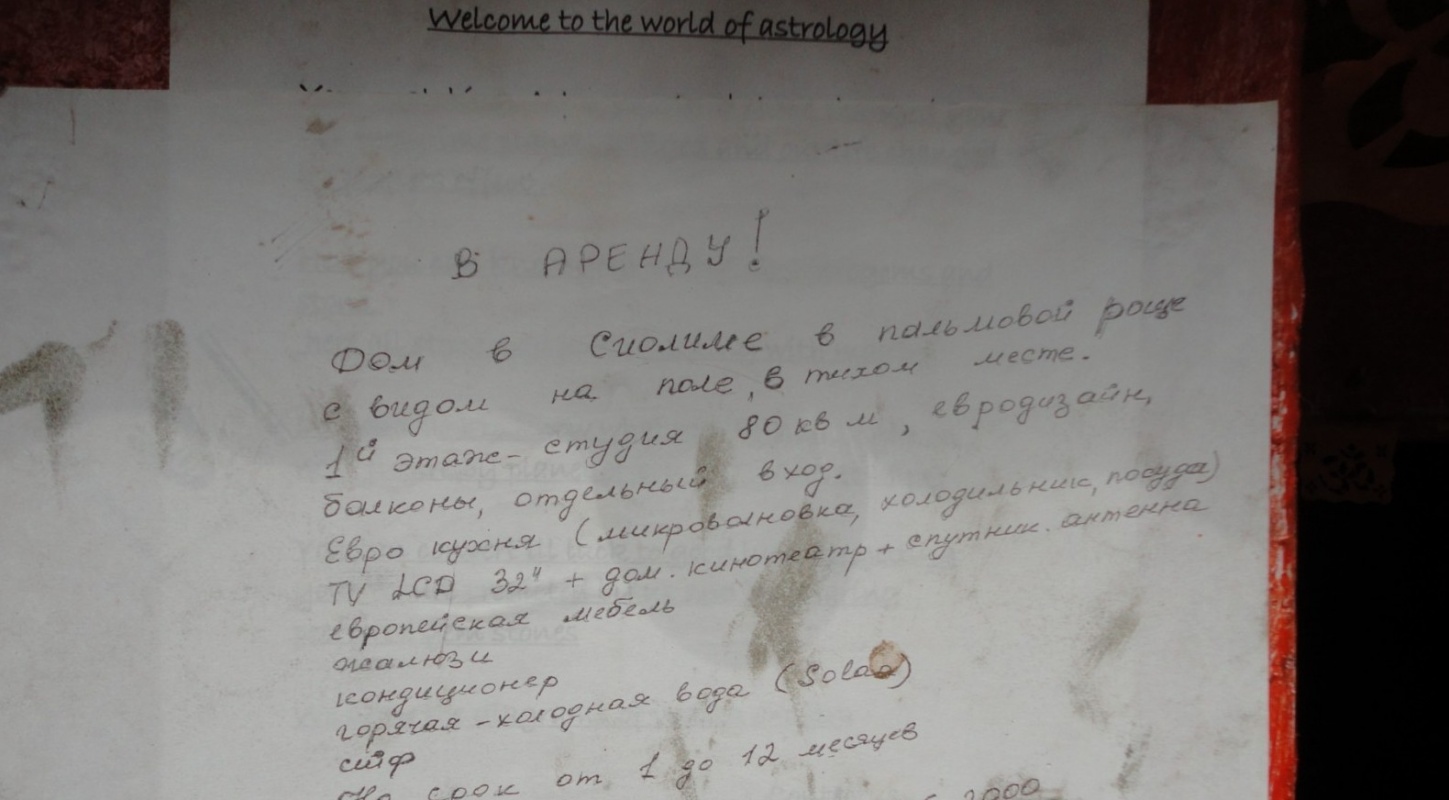 Welcome to the world of astrology
В АРЕНДУ!
Дом в Сиолиме в пальмовой роще
с видом на поле, в тихом месте.
1й этаж - студия 80 кв м, евродизайн,
балконы, отдельный вход.
Евро кухня (микроволновка, холодильник, посуда)
TV LCD 32" + дом. кинотеатр + спутник. антенна
европейская мебель
жалюзи
кондиционер
горячая - холодная вода (Solar)
сейф
На срок от 1 до 12 месяцев